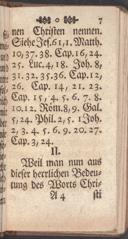 7
nen Christen nennen.
Siehe Jes. 61, 1. Matth.
10, 37. 38. Cap. 16, 24.
25. Luc. 4, 18. Joh. 8,
31. 32. 35. 36. Cap. 12,
26. Cap. 14, 21. 23.
Cap. 15, 4. 5. 6. 7. 8.
10. 12. Röm. 8, 9. Gal.
5, 24. Phil. 2, 5. 1 Joh.
2, 3. 4. 5. 6. 9. 20. 27.
Cap. 3, 24.
II.
Weil man nun aus
dieser herrlichen Bedeu-
tung des Worts Chri-
A 4 sti